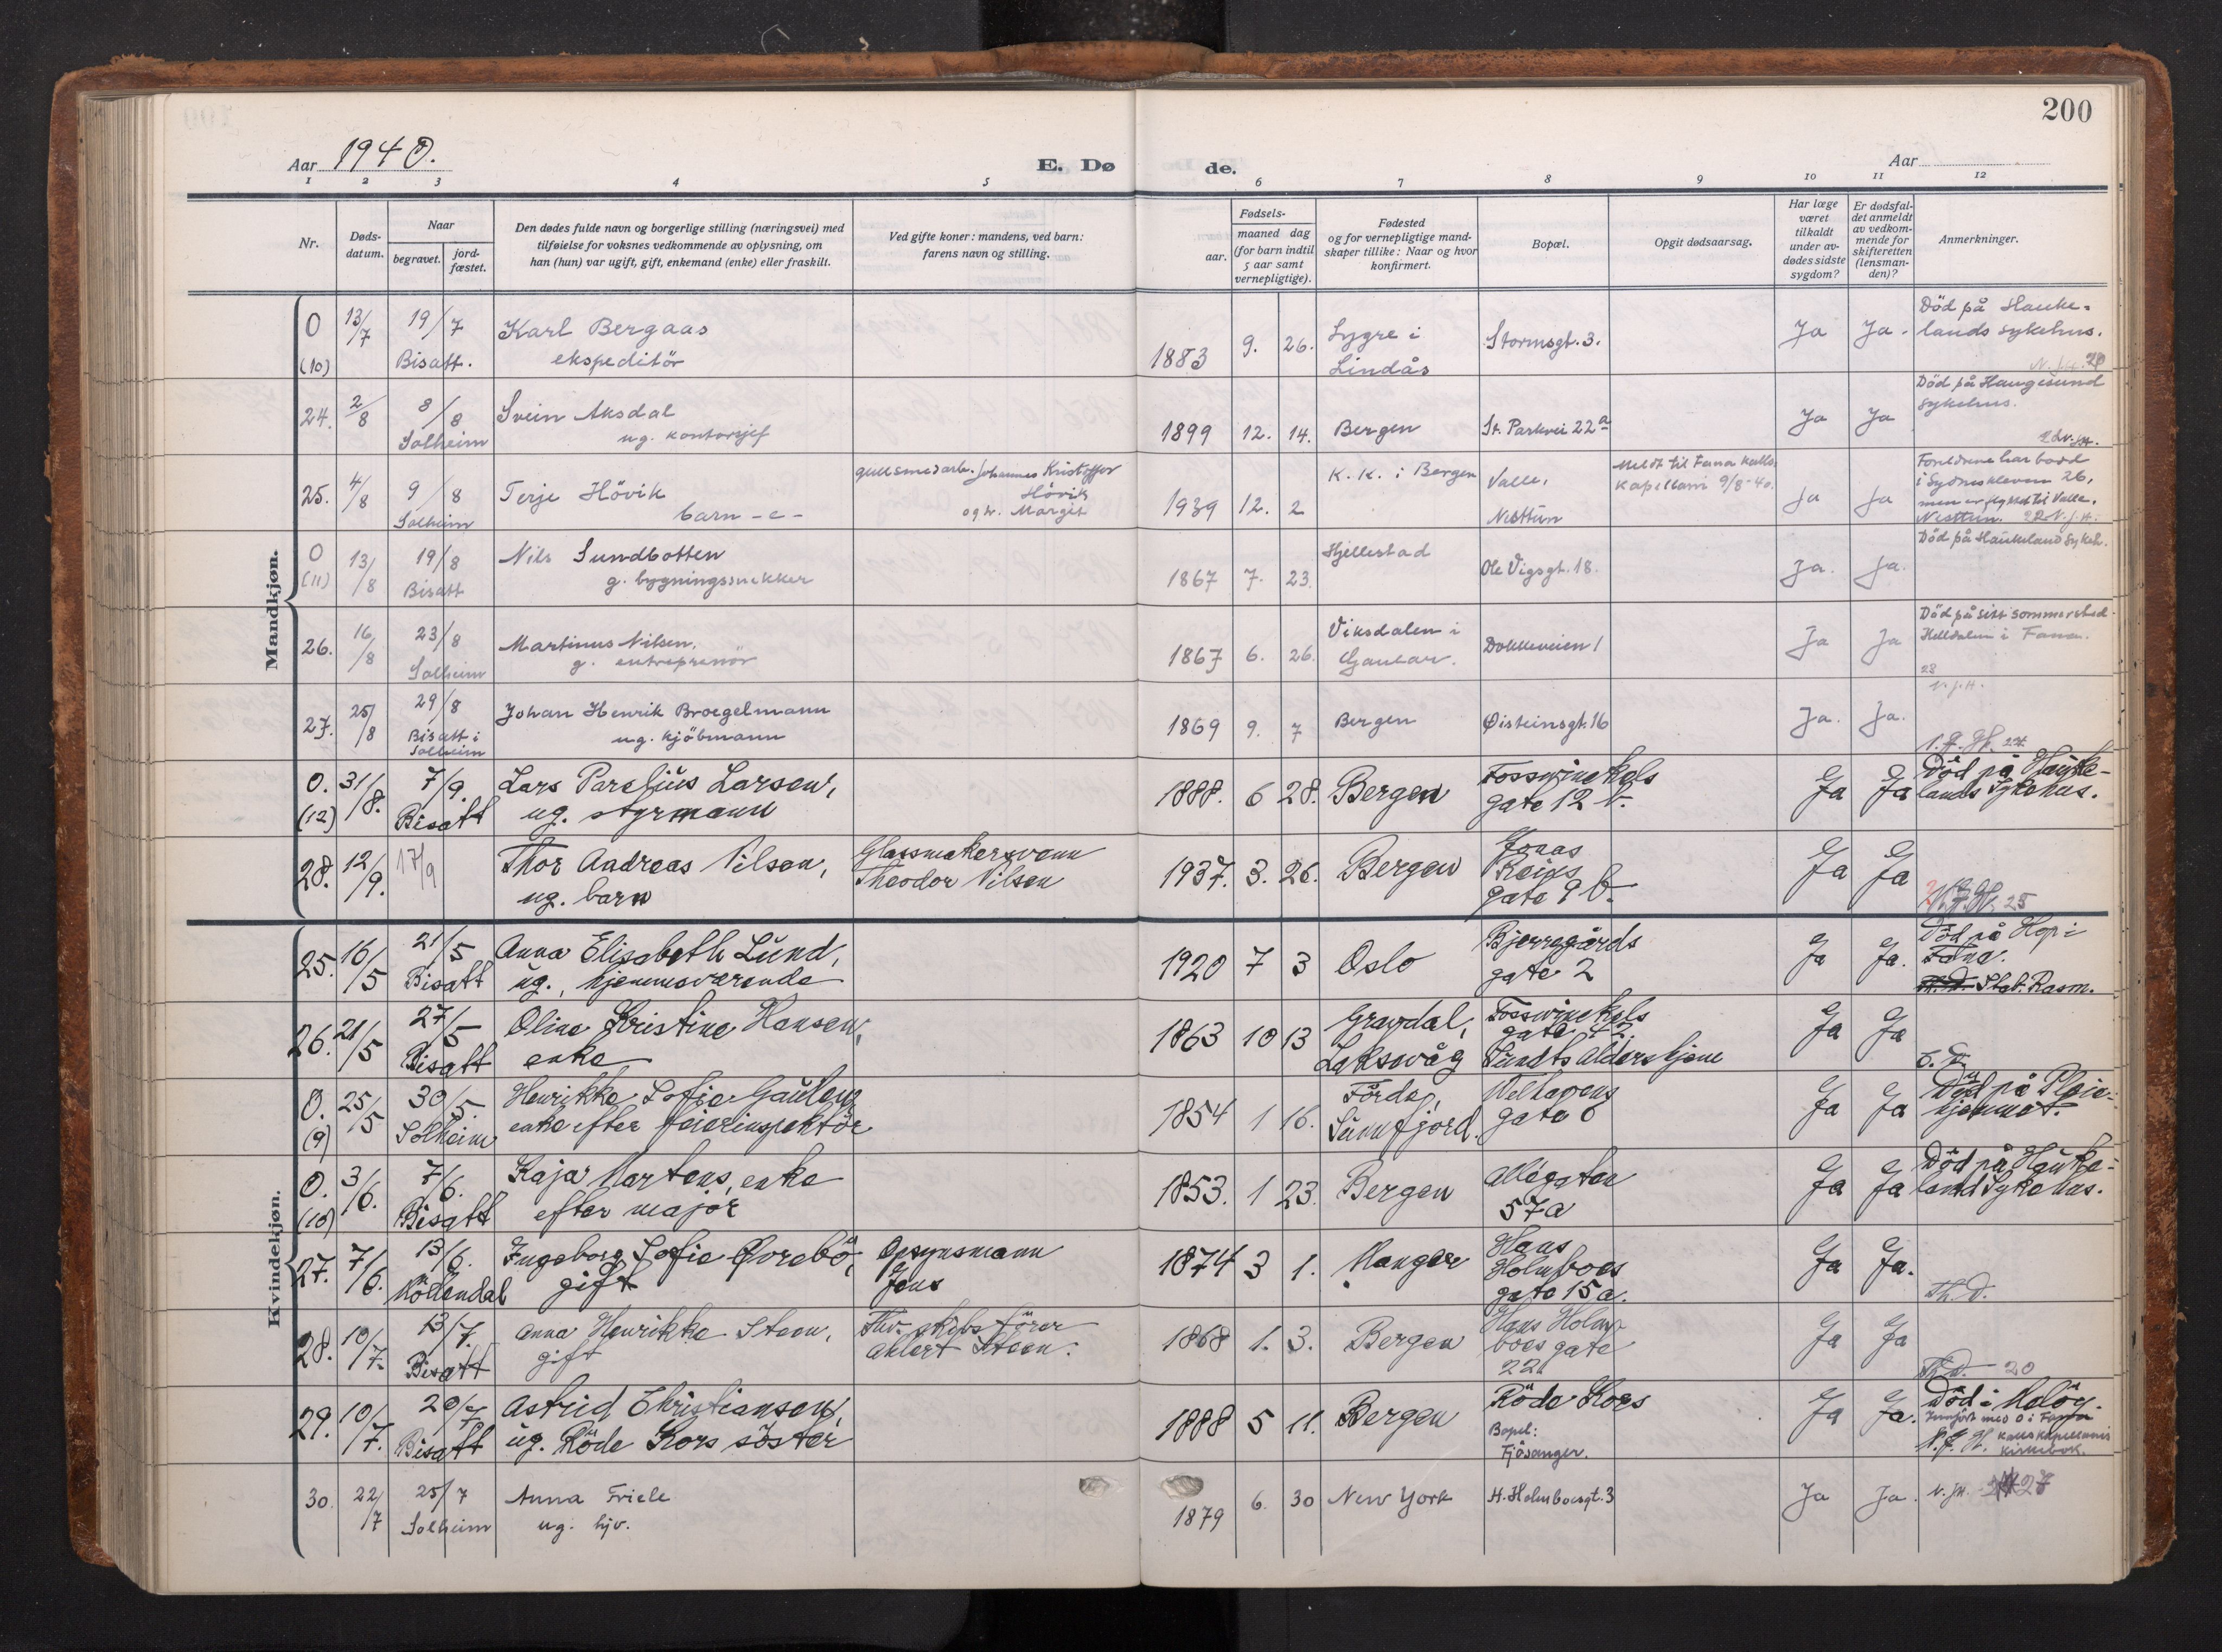 200
Aar 1940.
E. Dø
de.
Aar
1 2 3 4 5 6 7 8 9 10 11 12
Nr.
Døds-
datum.
Naar
begravet.
jord-
fæstet.
Den dødes fulde navn og borgerlige stilling (næringsvei) med
tilføielse for voksnes vedkommende av oplysning, om
han (hun) var ugift, gift, enkemand (enke) eller fraskilt.
Ved gifte koner: mandens, ved barn:
farens navn og stilling.
Fødsels-
aar.
maaned dag
(for barn indtil
5 aar samt
vernepligtige).
Fødested
og for vernepligtige mand-
skaper tillike: Naar og hvor
konfirmert.
Bopæl.
Opgit dødsaarsag.
Har læge
været
tilkaldt
under av-
dødes sidste
sygdom?
Er dødsfal-
det anmeldt
av vedkom-
mende for
skifteretten
(lensman-
den)?
Anmerkninger.
Mandkjøn.
0 (10) 13/7 19/7 Bisatt.
Karl Bergaas
ekspeditör
1883 9. 26. Lygre i
Lindås
Stormsgt. 3.
Ja Ja.
Död på Hauke-
lands sykehus.
20
24. 2/8 8/8 Solheim
Svein Aksdal
ug. kontorsjef
1899 12. 14. Bergen
St. Parkvei 22a
Ja Ja
Död på Haugesund
sykehus.
25. 4/8 9/8 Solheim
Terje Hövik
barn -e-
gullsmedarb. Johannes Kristoffer
Hövik
og h. Margit
1939 12. 2
K. K. i Bergen
Valle,
Nesttun
Meldt til Fana kalls
kapellani 9/8-40.
Ja Ja
Foreldrene har bodd
i Sydneskleven 26,
men er flyttet til Valle,
Nesttun. 22 N.J.H.
0 (11) 13/8 19/8 Bisatt
Nils Sundbotten
g. bygningssnekker
1867 7. 23.
Hjellestad
Ole Vigsgt. 18.
Ja. Ja.
Död på Haukeland sykeh.
26. 16/8 23/8 Solheim
Martinus Nilsen,
g. entreprenör
1867 6. 26.
Viksdalen i
Gaular.
Dokkeveien 1
Ja Ja
Död på sitt sommersted
Helldalen i Fana.
23
N.J.H.
27. 25/8 29/8 Bisatt i
Solheim
Johan Henrik Broegelmann
ug. kjöbmann
1869 9. 7 Bergen
Øisteinsgt. 16
Ja. Ja.
0. (12) 31/8. 7/9. Bisatt
Lars Parelius Larsen,
ug. styrmann
1888. 6 28. Bergen
Fosswinckels
gate 12 b.
Ja Ja
Död på Hauke-
lands Sykehus.
28. 12/9. 17/9
Thor Andreas Nilsen,
ug. barn
Glassmakersvenn
Theodor Nilsen
1937. 3. 26. Bergen
Jonas
Reins
gate 9 b.
Ja Ja
25
Kvindekjøn.
25. 16/5 21/5 Bisatt
Anna Elisabeth Lund,
ug., hjemmeværende
1920 7 3 Oslo
Bjerregårds
gate 2
Ja Ja.
Död på Hop i
Fana.
Stat. Rasm.
26. 21/5 27/5 Bisatt
Oline Kristine Hansen,
enke
1863 10 13
Gravdal,
Laksevåg
Fosswinckels
gate 42
Sundts Aldershjem
Ja Ja
0. (9) 25/5 30/5. Solheim
Henrikke Sofie Gaulen
enke efter feierinspektör
1854 1 16.
Förde,
Sunnfjord.
Welhavens
gate 6
Ja Ja
Död på Pleie-
hjemmet.
0. (10) 3/6. 7/6. Bisatt
Kaja Martens, enke
efter major
1853. 1 23. Bergen
Allégaten
57a
Ja Ja
Död på Hauke-
land Sykehus.
27. 7/6. 13/6. Möllendal
Ingeborg Sofie Øvrebö,
gift
Opsynsmann
Jens
1874 3 1. Manger
Hans
Holmboes
gate 15a.
Ja Ja.
Th. D.
28. 10/7. 13/7. Bisatt
Anna Henrikke Steen,
gift
Fhv. skibsförer
Ahlert Steen.
1868 1. 3. Bergen
Hans Holm-
boes gate
22.
Ja Ja
Th. D. 20
29. 10/7. 20/7 Bisatt
Astrid Christiansen,
ug. Röde Kors söster
1888 5 11. Bergen
Röde Kors
Bopel:
Fjösanger.
Ja Ja.
Död i Målöy.
Innfört med 0 i Fana
N. J. H. kallskapellanis
kirkebok.
30. 22/7 25/7 Solheim
Anna Friele
ug. hjv.
1879 6. 30 New York
H. Holmboesgt. 3
Ja Ja.
N.J.H. 27